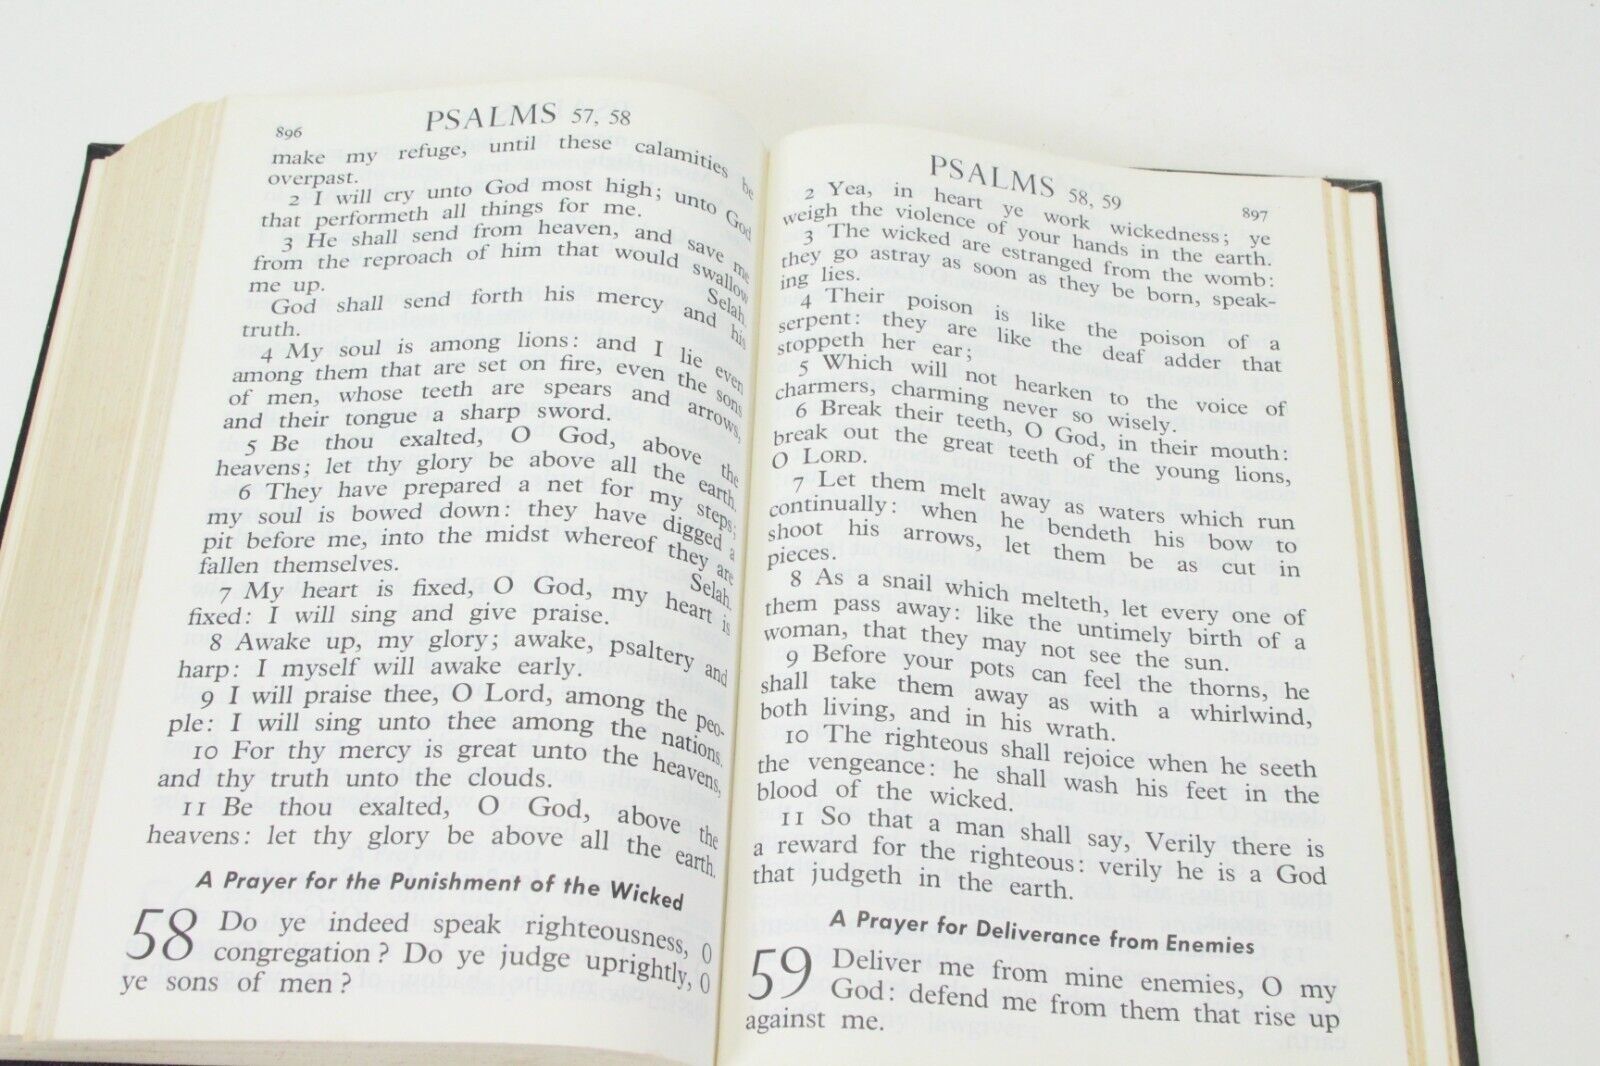 896
PSALMS 57, 58
make my refuge, until these calamities be
overpast.
2 I will cry unto God most high; unto God
that performeth all things for me.
3 He shall send from heaven, and save me
from the reproach of him that would swallow
me up. Selah.
God shall send forth his mercy and his
truth.
4 My soul is among lions: and I lie even
among them that are set on fire, even the sons
of men, whose teeth are spears and arrows,
and their tongue a sharp sword.
5 Be thou exalted, O God, above the
heavens; let thy glory be above all the earth.
6 They have prepared a net for my steps;
my soul is bowed down: they have digged a
pit before me, into the midst whereof they are
fallen themselves. Selah.
7 My heart is fixed, O God, my heart is
fixed: I will sing and give praise.
8 Awake up, my glory; awake, psaltery and
harp: I myself will awake early.
9 I will praise thee, O Lord, among the peo-
ple: I will sing unto thee among the nations.
10 For thy mercy is great unto the heavens,
and thy truth unto the clouds.
11 Be thou exalted, O God, above the
heavens: let thy glory be above all the earth.
A Prayer for the Punishment of the Wicked
58 Do ye indeed speak righteousness, O
congregation? Do ye judge uprightly, O
ye sons of men?
PSALMS 58, 59
897
2 Yea, in heart ye work wickedness; ye
weigh the violence of your hands in the earth.
3 The wicked are estranged from the womb:
they go astray as soon as they be born, speak-
ing lies.
4 Their poison is like the poison of a
serpent: they are like the deaf adder that
stoppeth her ear;
5 Which will not hearken to the voice of
charmers, charming never so wisely.
6 Break their teeth, O God, in their mouth:
break out the great teeth of the young lions,
O LORD.
7 Let them melt away as waters which run
continually: when he bendeth his bow to
shoot his arrows, let them be as cut in
pieces.
8 As a snail which melteth, let every one of
them pass away: like the untimely birth of a
woman, that they may not see the sun.
9 Before your pots can feel the thorns, he
shall take them away as with a whirlwind,
both living, and in his wrath.
10 The righteous shall rejoice when he seeth
the vengeance: he shall wash his feet in the
blood of the wicked.
11 So that a man shall say, Verily there is
a reward for the righteous: verily he is a God
that judgeth in the earth.
A Prayer for Deliverance from Enemies
59 Deliver me from mine enemies, O my
God: defend me from them that rise up
against me.